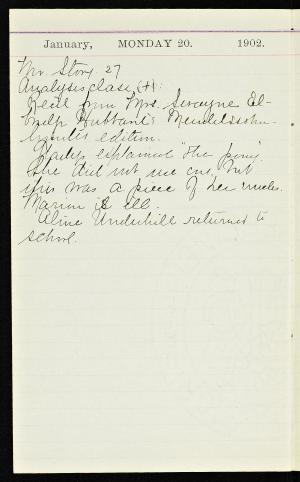 January, MONDAY 20. 1902.
Mr. Story 27
Analysis class (+):
Rec'd from Mrs. Swayne El-
bert Hubbard's Mendelssohn
edition.
Gladys explained "the pony."
She did not use one, but
this was a piece of her uncle's.
Marion is ill.
Aline Underhill returned to
school.